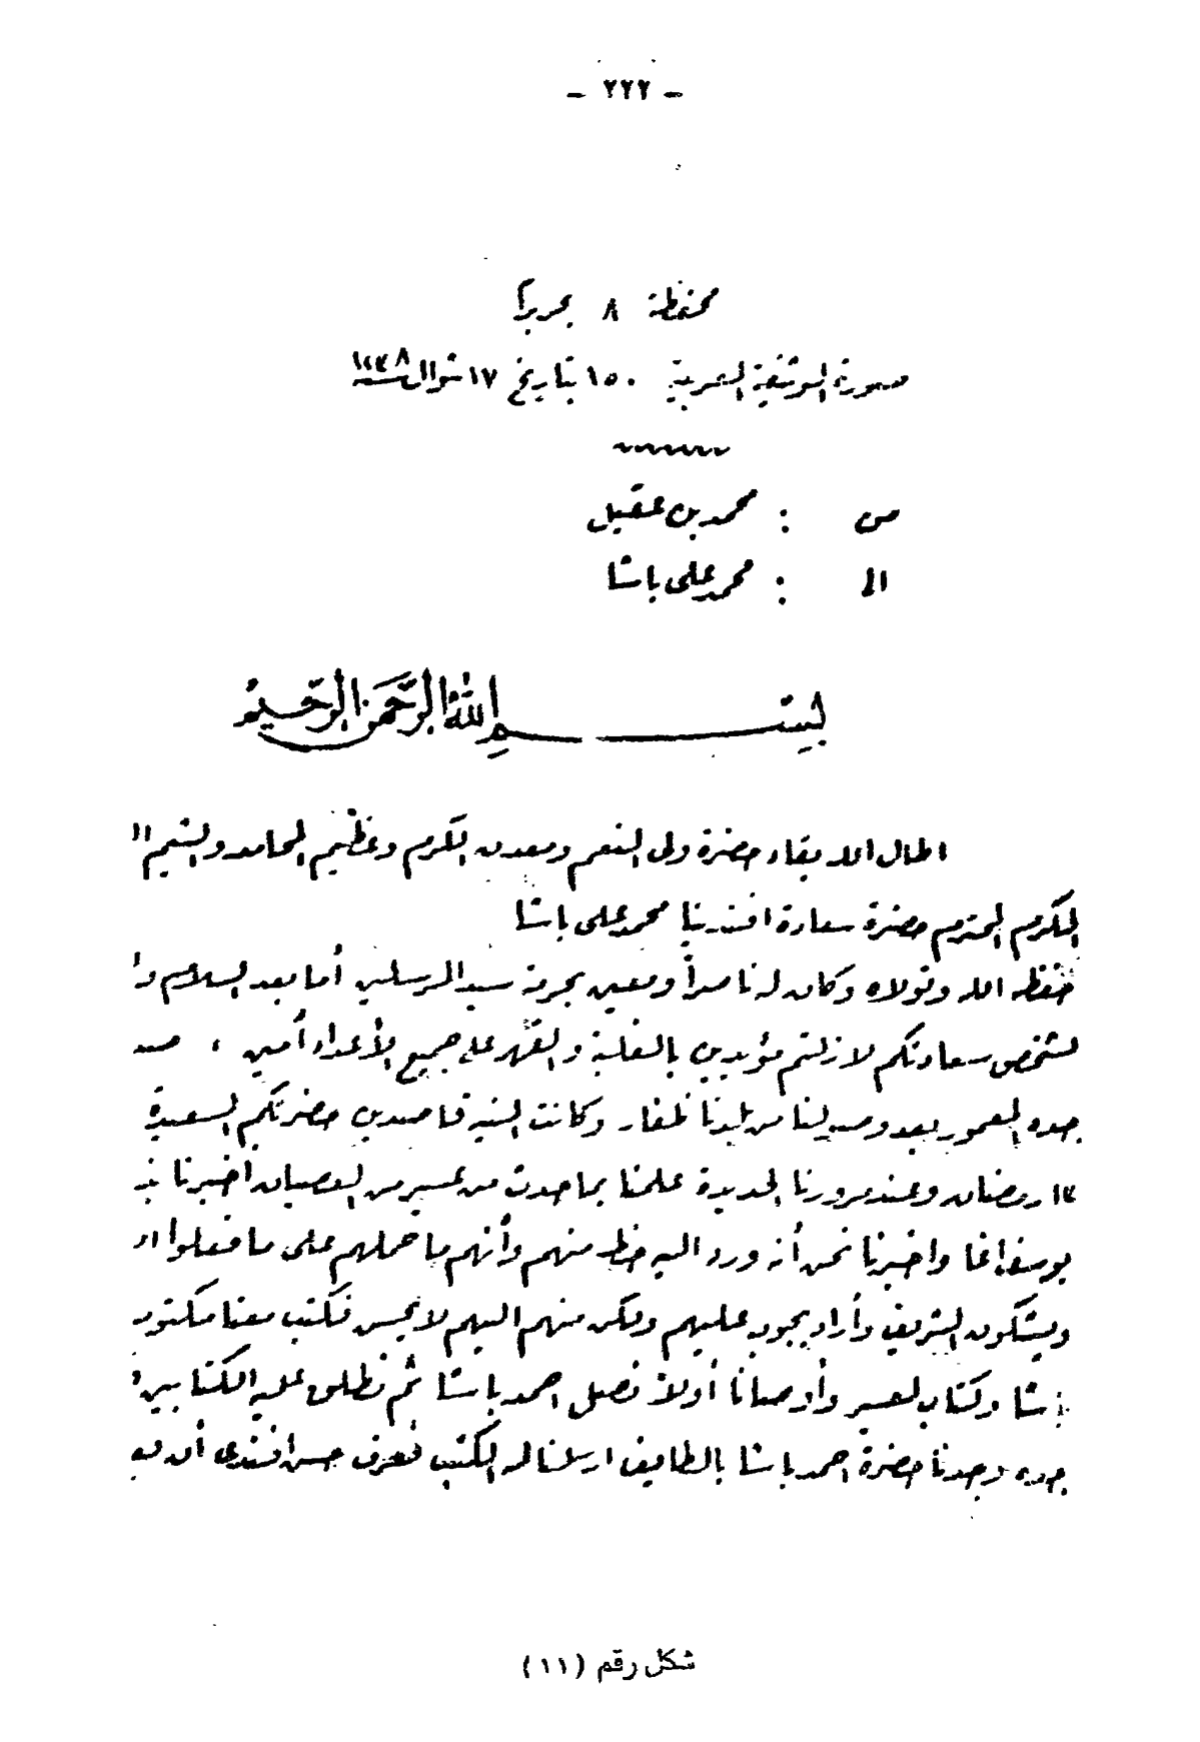 - ٢٢٢ -
محفظة ٨ بحربرا
صورة الوثيقة العربية ١٥٠ بتاريخ ١٧ شوال سنة ١٢٣٨
من : محمد بن عقيل
الى : محمد على باشا
بسم الله الرحمن الرحيم
اطال الله بقاء حضرة ولى النعم ومعدن الكرم وعظيم المحامد والشيم
المكرم المحترم حضرة سعادة افندينا محمد على باشا
حفظه الله وتولاه وكان له ناصراً ومعين بحرمة سيد المرسلين أما بعد السلام وا
لشخص سعادتكم لازلتم مؤيدين بالغلبة والقهر على جميع الأعداء أمين ،
جده المعمور بعد وصولنا من بلدنا ظفار وكانت النية قاصدين حضرتكم السعيدة
١٢ رمضان وعند مرورنا الحديدة علمنا بما حدث من عسير من العصيان اخبرنا
يوسف اغا واخبرنا نحن أنه ورد اليه خط منهم وأنهم ما حملهم على ما فعلوا
ويشكون الشريف وأراد يجوب عليهم ولكن منهم اليهم لا يحسن فكتب معنا مكتوب
باشا وكتاب لعسير وأوصانا أولا نصل احمد باشا ثم نطلق عليه الكتابين
جده وجدنا حضرة احمد باشا بالطايف ارسلنا له الكتب فعرف حسن افندى أن
شكل رقم (١١)